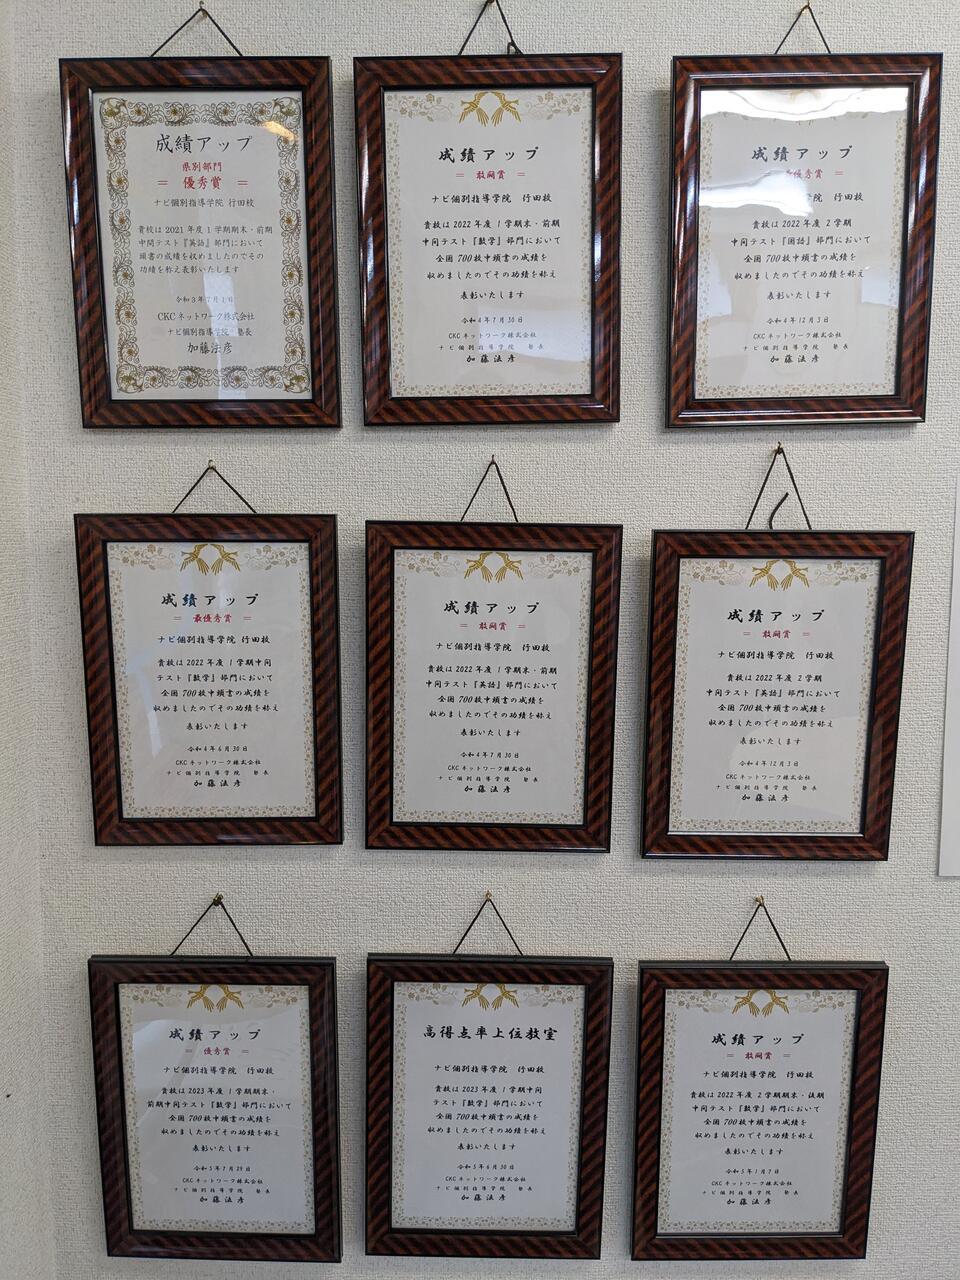 成績アップ
県別部門
= 優秀賞 =
ナビ個別指導学院 行田校
貴校は2021年度1学期期末・前期
中間テスト『英語』部門において
頭書の成績を収めましたのでその
功績を称え表彰いたします
令和3年7月1日
CKCネットワーク株式会社
ナビ個別指導学院 塾長
加藤法彦
成績アップ
= 敢闘賞 =
ナビ個別指導学院 行田校
貴校は2022年度 1学期期末・前期
中間テスト『数学』部門において
全国700校中頭書の成績を
収めましたのでその功績を称え
表彰いたします
令和4年7月30日
CKCネットワーク株式会社
ナビ個別指導学院 塾長
加藤法彦
成績アップ
= 最優秀賞 =
ナビ個別指導学院 行田校
貴校は2022年度 2学期
中間テスト『国語』部門において
全国700校中頭書の成績を
収めましたのでその功績を称え
表彰いたします
令和4年12月3日
CKCネットワーク株式会社
ナビ個別指導学院 塾長
加藤法彦
成績アップ
= 最優秀賞 =
ナビ個別指導学院 行田校
貴校は2022年度 1学期中間
テスト『数学』部門において
全国700校中頭書の成績を
収めましたのでその功績を称え
表彰いたします
令和4年6月30日
CKCネットワーク株式会社
ナビ個別指導学院 塾長
加藤法彦
成績アップ
= 敢闘賞 =
ナビ個別指導学院 行田校
貴校は2022年度 1学期期末・前期
中間テスト『英語』部門において
全国700校中頭書の成績を
収めましたのでその功績を称え
表彰いたします
令和4年7月30日
CKCネットワーク株式会社
ナビ個別指導学院 塾長
加藤法彦
成績アップ
= 敢闘賞 =
ナビ個別指導学院 行田校
貴校は2022年度 2学期
中間テスト『英語』部門において
全国700校中頭書の成績を
収めましたのでその功績を称え
表彰いたします
令和4年12月3日
CKCネットワーク株式会社
ナビ個別指導学院 塾長
加藤法彦
成績アップ
= 優秀賞 =
ナビ個別指導学院 行田校
貴校は2023年度 1学期期末・
前期中間テスト『数学』部門において
全国700校中頭書の成績を
収めましたのでその功績を称え
表彰いたします
令和5年7月29日
CKCネットワーク株式会社
ナビ個別指導学院 塾長
加藤法彦
高得点率上位教室
ナビ個別指導学院 行田校
貴校は2023年度 1学期中間
テスト『数学』部門において
全国700校中頭書の成績を
収めましたのでその功績を称え
表彰いたします
令和5年6月30日
CKCネットワーク株式会社
ナビ個別指導学院 塾長
加藤法彦
成績アップ
= 敢闘賞 =
ナビ個別指導学院 行田校
貴校は2022年度 2学期期末・後期
中間テスト『数学』部門において
全国700校中頭書の成績を
収めましたのでその功績を称え
表彰いたします
令和5年1月7日
CKCネットワーク株式会社
ナビ個別指導学院 塾長
加藤法彦